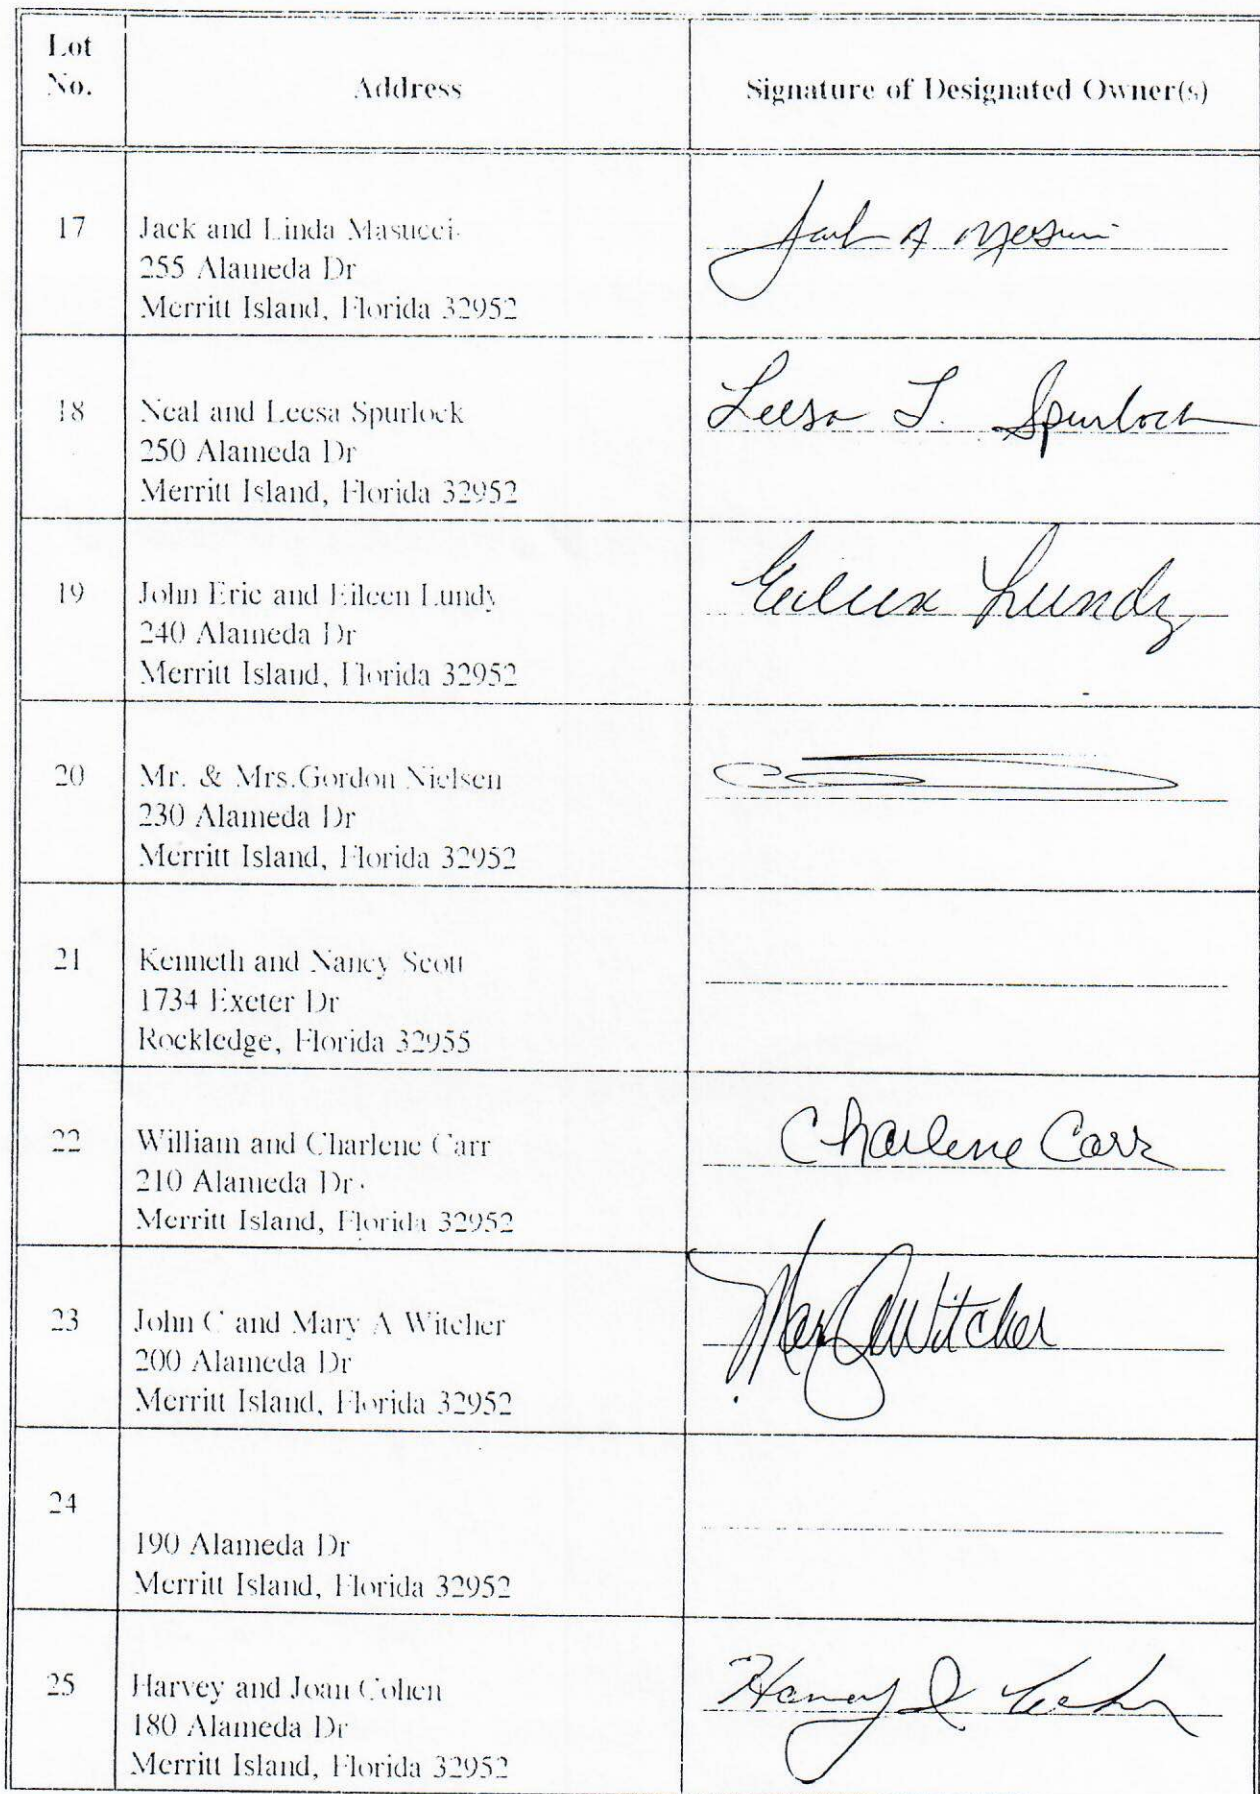 Lot No.
Address
Signature of Designated Owner(s)
17
Jack and Linda Masucci
255 Alameda Dr
Merritt Island, Florida 32952
18
Neal and Leesa Spurlock
250 Alameda Dr
Merritt Island, Florida 32952
Leesa T. Spurlock
19
John Eric and Eileen Lundy
240 Alameda Dr
Merritt Island, Florida 32952
Eileen Lundy
20
Mr. & Mrs.Gordon Nielsen
230 Alameda Dr
Merritt Island, Florida 32952
21
Kenneth and Nancy Scott
1734 Exeter Dr
Rockledge, Florida 32955
22
William and Charlene Carr
210 Alameda Dr
Merritt Island, Florida 32952
Charlene Carr
23
John C and Mary A Witcher
200 Alameda Dr
Merritt Island, Florida 32952
Mary A Witcher
24
190 Alameda Dr
Merritt Island, Florida 32952
25
Harvey and Joan Cohen
180 Alameda Dr
Merritt Island, Florida 32952
Harvey